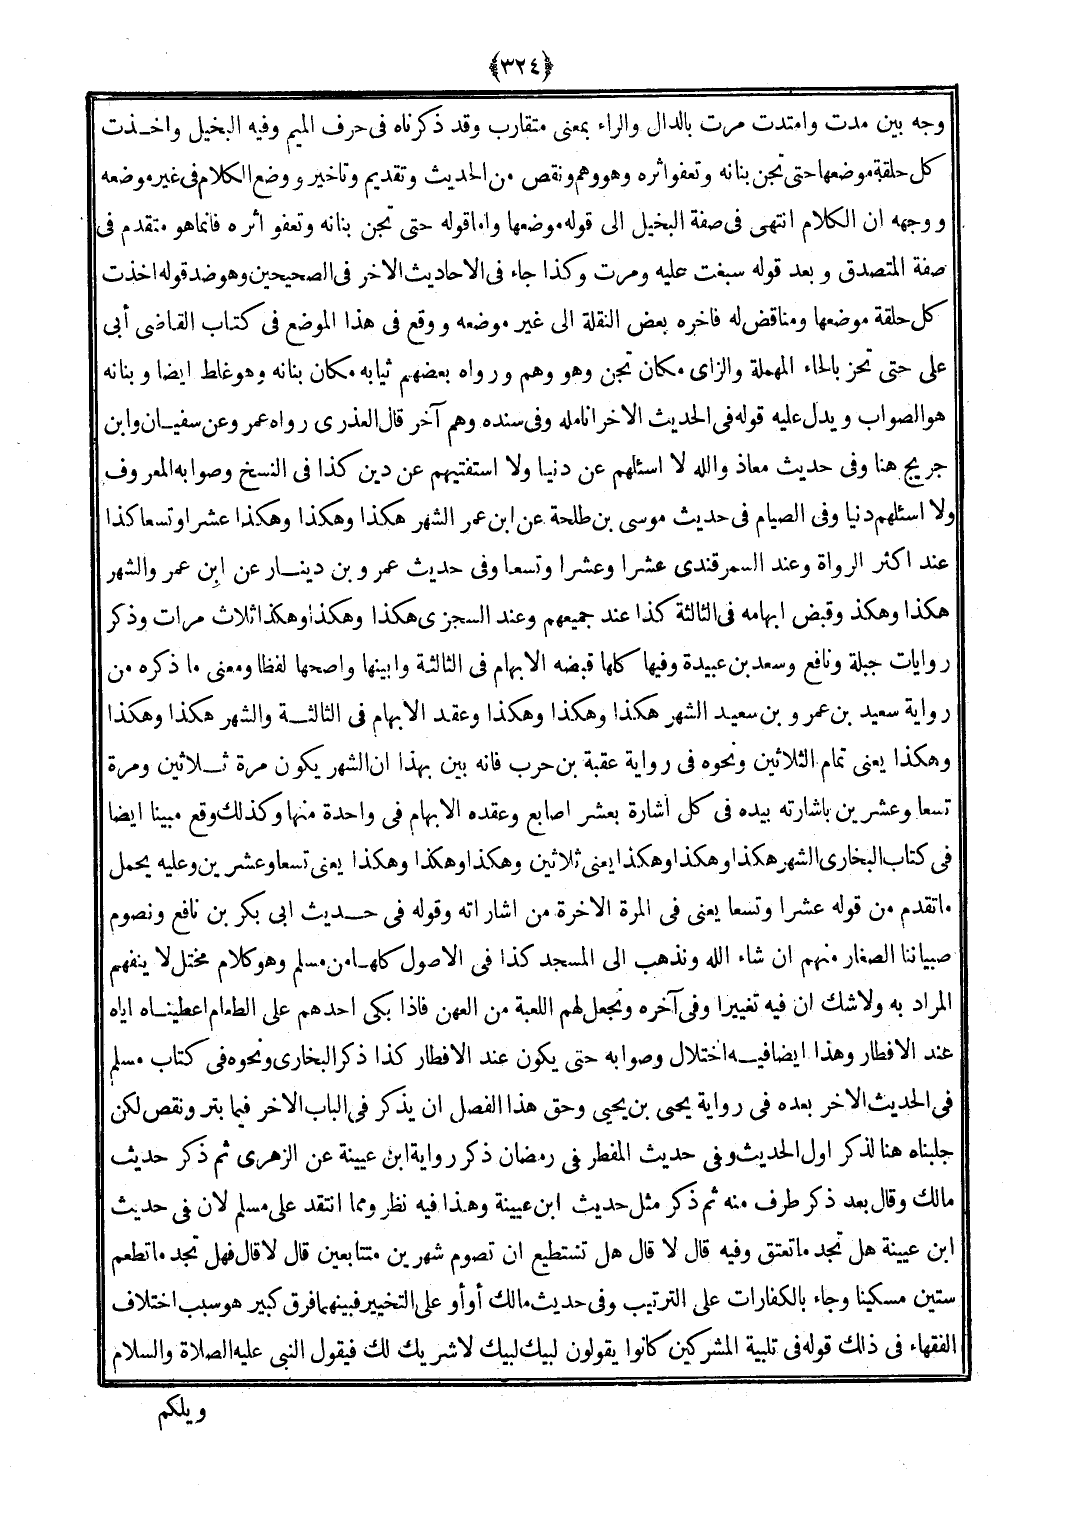 ﴿٣٢٤﴾
وجه بين مدت وامتدت مرت بالدال والراء بمعنى متقارب وقد ذكرناه فى حرف الميم وفيه البخيل واخـذت
كل حلقة موضعها حتى تجن بنانه وتعفو اثره وهو وهم ونقص من الحديث وتقديم وتاخير ووضع الكلام فى غير موضعه
ووجهه ان الكلام انتهى فى صفة البخيل الى قوله موضعها واما قوله حتى تجن بنانه وتعفو اثره فانما هو متقدم فى
صفة المتصدق وبعد قوله سبغت عليه ومرت وكذا جاء فى الاحاديث الاخر فى الصحيحين وهو ضد قوله اخذت
كل حلقة موضعها ومناقض له فاخره بعض النقلة الى غير موضعه ووقع فى هذا الموضع فى كتاب القاضى أبى
على حتى تحز بالحاء المهملة والزاى مكان تجن وهو وهم ورواه بعضهم ثيابه مكان بنانه وهو غلط ايضا وبنانه
هو الصواب ويدل عليه قوله فى الحديث الاخر انامله وفى سنده وهم آخر قال العذرى رواه عمر وعن سفيـان وابن
جريج هنا وفى حديث معاذ والله لا اسئلهم عن دنيا ولا استفتيهم عن دين كذا فى النسخ وصوابه المعروف
ولا اسئلهم دنيا وفى الصيام فى حديث موسى بن طلحة عن ابن عمر الشهر هكذا وهكذا وهكذا عشرا وتسعا كذا
عند اكثر الرواة وعند السمرقندى عشرا وعشرا وتسعا وفى حديث عمرو بن دينـار عن ابن عمر والشهر
هكذا وهكذ وقبض ابهامه فى الثالثة كذا عند جميعهم وعند السجزى هكذا وهكذا وهكذا ثلاث مرات وذكر
روايات جبلة ونافع وسعد بن عبيدة وفيها كلها قبضه الابهام فى الثالثة وابينها واصحها لفظا ومعنى ما ذكره من
رواية سعيد بن عمرو بن سعيد الشهر هكذا وهكذا وهكذا وعقد الابهام فى الثالثـة والشهر هكذا وهكذا
وهكذا يعنى تمام الثلاثين ونحوه فى رواية عقبة بن حرب فانه بين بهذا ان الشهر يكون مرة ثـلاثين ومرة
تسعا وعشرين باشارته بيده فى كل اشارة بعشر اصابع وعقده الابهام فى واحدة منها وكذلك وقع مبينا ايضا
فى كتاب البخارى الشهر هكذا وهكذا وهكذا يعنى ثلاثين وهكذا وهكذا وهكذا يعنى تسعا وعشرين وعليه يحمل
ماتقدم من قوله عشرا وتسعا يعنى فى المرة الاخرة من اشاراته وقوله فى حـديث ابى بكر بن نافع ونصوم
صبياننا الصغار منهم ان شاء الله ونذهب الى المسجد كذا فى الاصول كلهـا من مسلم وهو كلام مختل لا ينفهم
المراد به ولاشك ان فيه تغييرا وفى آخره ونجعل لهم اللعبة من العهن فاذا بكى احدهم على الطعام اعطينـاه اياه
عند الافطار وهذا ايضا فيـه اختلال وصوابه حتى يكون عند الافطار كذا ذكر البخارى ونحوه فى كتاب مسلم
فى الحديث الاخر بعده فى رواية يحيى بن يحيى وحق هذا الفصل ان يذكر فى الباب الاخر فيما بتر ونقص لكن
جلبناه هنا لذكر اول الحديث وفى حديث المفطر فى رمضان ذكر رواية ابن عيينة عن الزهرى ثم ذكر حديث
مالك وقال بعد ذكر طرف منه ثم ذكر مثل حديث ابن عيينة وهـذا فيه نظر ومما انتقد على مسلم لان فى حديث
ابن عيينة هل تجد ماتعتق وفيه قال لا قال هل تستطيع ان تصوم شهرين متتابعين قال لا قال فهل تجد ماتطعم
ستين مسكينا وجاء بالكفارات على الترتيب وفى حديث مالك أو أو على التخيير فبينهما فرق كبير هو سبب اختلاف
الفقهاء فى ذلك قوله فى تلبية المشركين كانوا يقولون لبيك لبيك لاشريك لك فيقول النبى عليه الصلاة والسلام
ويلكم